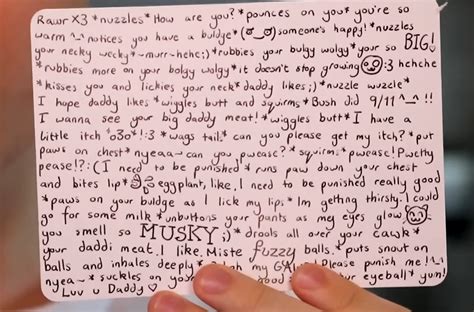 Rawr X3 *nuzzles* How are you? *pounces on you* you're so
warm ^_^ notices you have a buldge* (ʘ‿ʘ) someone's happy! *nuzzles
your necky wecky* ~murr~ hehe;) *rubbies your bulgy wolgy* your so BIG!
*rubbies more on your bolgy wolgy* it doesn't stop growing :3 hehehe
*kisses you and lickies your neck* daddy likes ;) *nuzzle wuzzle*
I hope daddy likes *wiggles butt and squirms* Bush did 9/11 ^_^ !!
I wanna see your big daddy meat! *wiggles butt* I have a
little itch *o3o* !:3 *wags tail* can you please get my itch? *put
paws on chest* nyeaa~ can you pwease? *squirms* pwease! Pwetty
pease!?:( I need to be punished *runs paw down your chest
and bites lip* eggplant, like, I need to be punished really good
*paws on your buldge as I lick my lips* Im getting thirsty. I could
go for some milk *unbuttons your pants as my eyes glow
you smell so MUSKY ;) *drools all over your
your daddi meat. I like. Miste fuzzy balls. *puts snout on
balls and inhales deeply* my Please punish me! ^_^
nyea~ *suckles on your good your eyeball* yum!
Luv u Daddy ♡